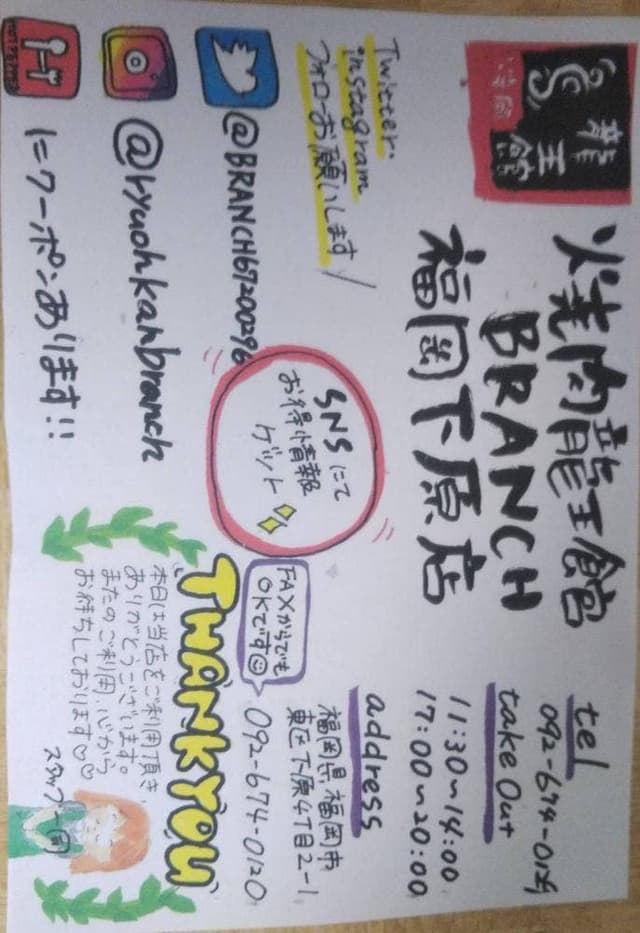 龍王館
焼肉龍王館
BRANCH
福岡下原店
Twitter・
instagram
フォローお願いします/
@BRANCH67200296
@ryuohkanbranch
にクーポンあります!!
SNSにて
お得情報
ゲット
tel
take out
11:30~14:00
17:00~20:00
address
福岡県福岡市
東区下原4丁目2-1
FAXからでも
OKです
092-674-0120
THANKYOU
本日は当店をご利用頂き、
ありがとうございます。
またのご利用、心から
お待ちしております♡♡
スタッフ一同